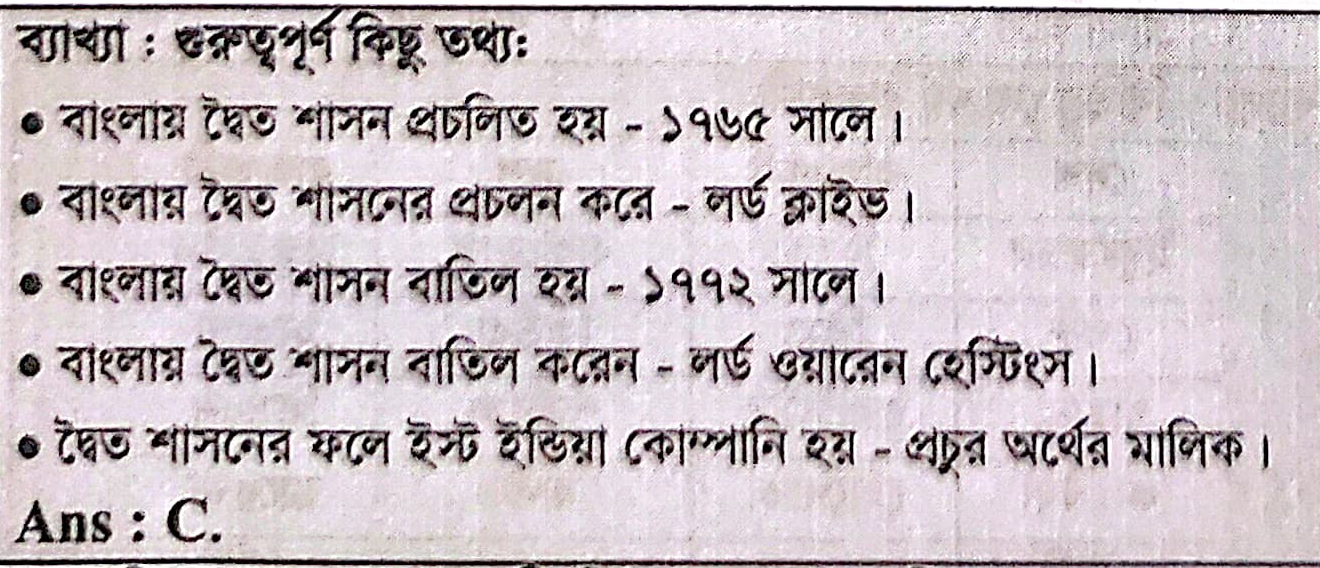 ব্যাখ্যা : গুরুত্বপূর্ণ কিছু তথ্য:
• বাংলায় দ্বৈত শাসন প্রচলিত হয় - ১৭৬৫ সালে।
• বাংলায় দ্বৈত শাসনের প্রচলন করে - লর্ড ক্লাইভ।
• বাংলায় দ্বৈত শাসন বাতিল হয় - ১৭৭২ সালে।
• বাংলায় দ্বৈত শাসন বাতিল করেন - লর্ড ওয়ারেন হেস্টিংস।
• দ্বৈত শাসনের ফলে ইস্ট ইন্ডিয়া কোম্পানি হয় - প্রচুর অর্থের মালিক।
Ans : C.